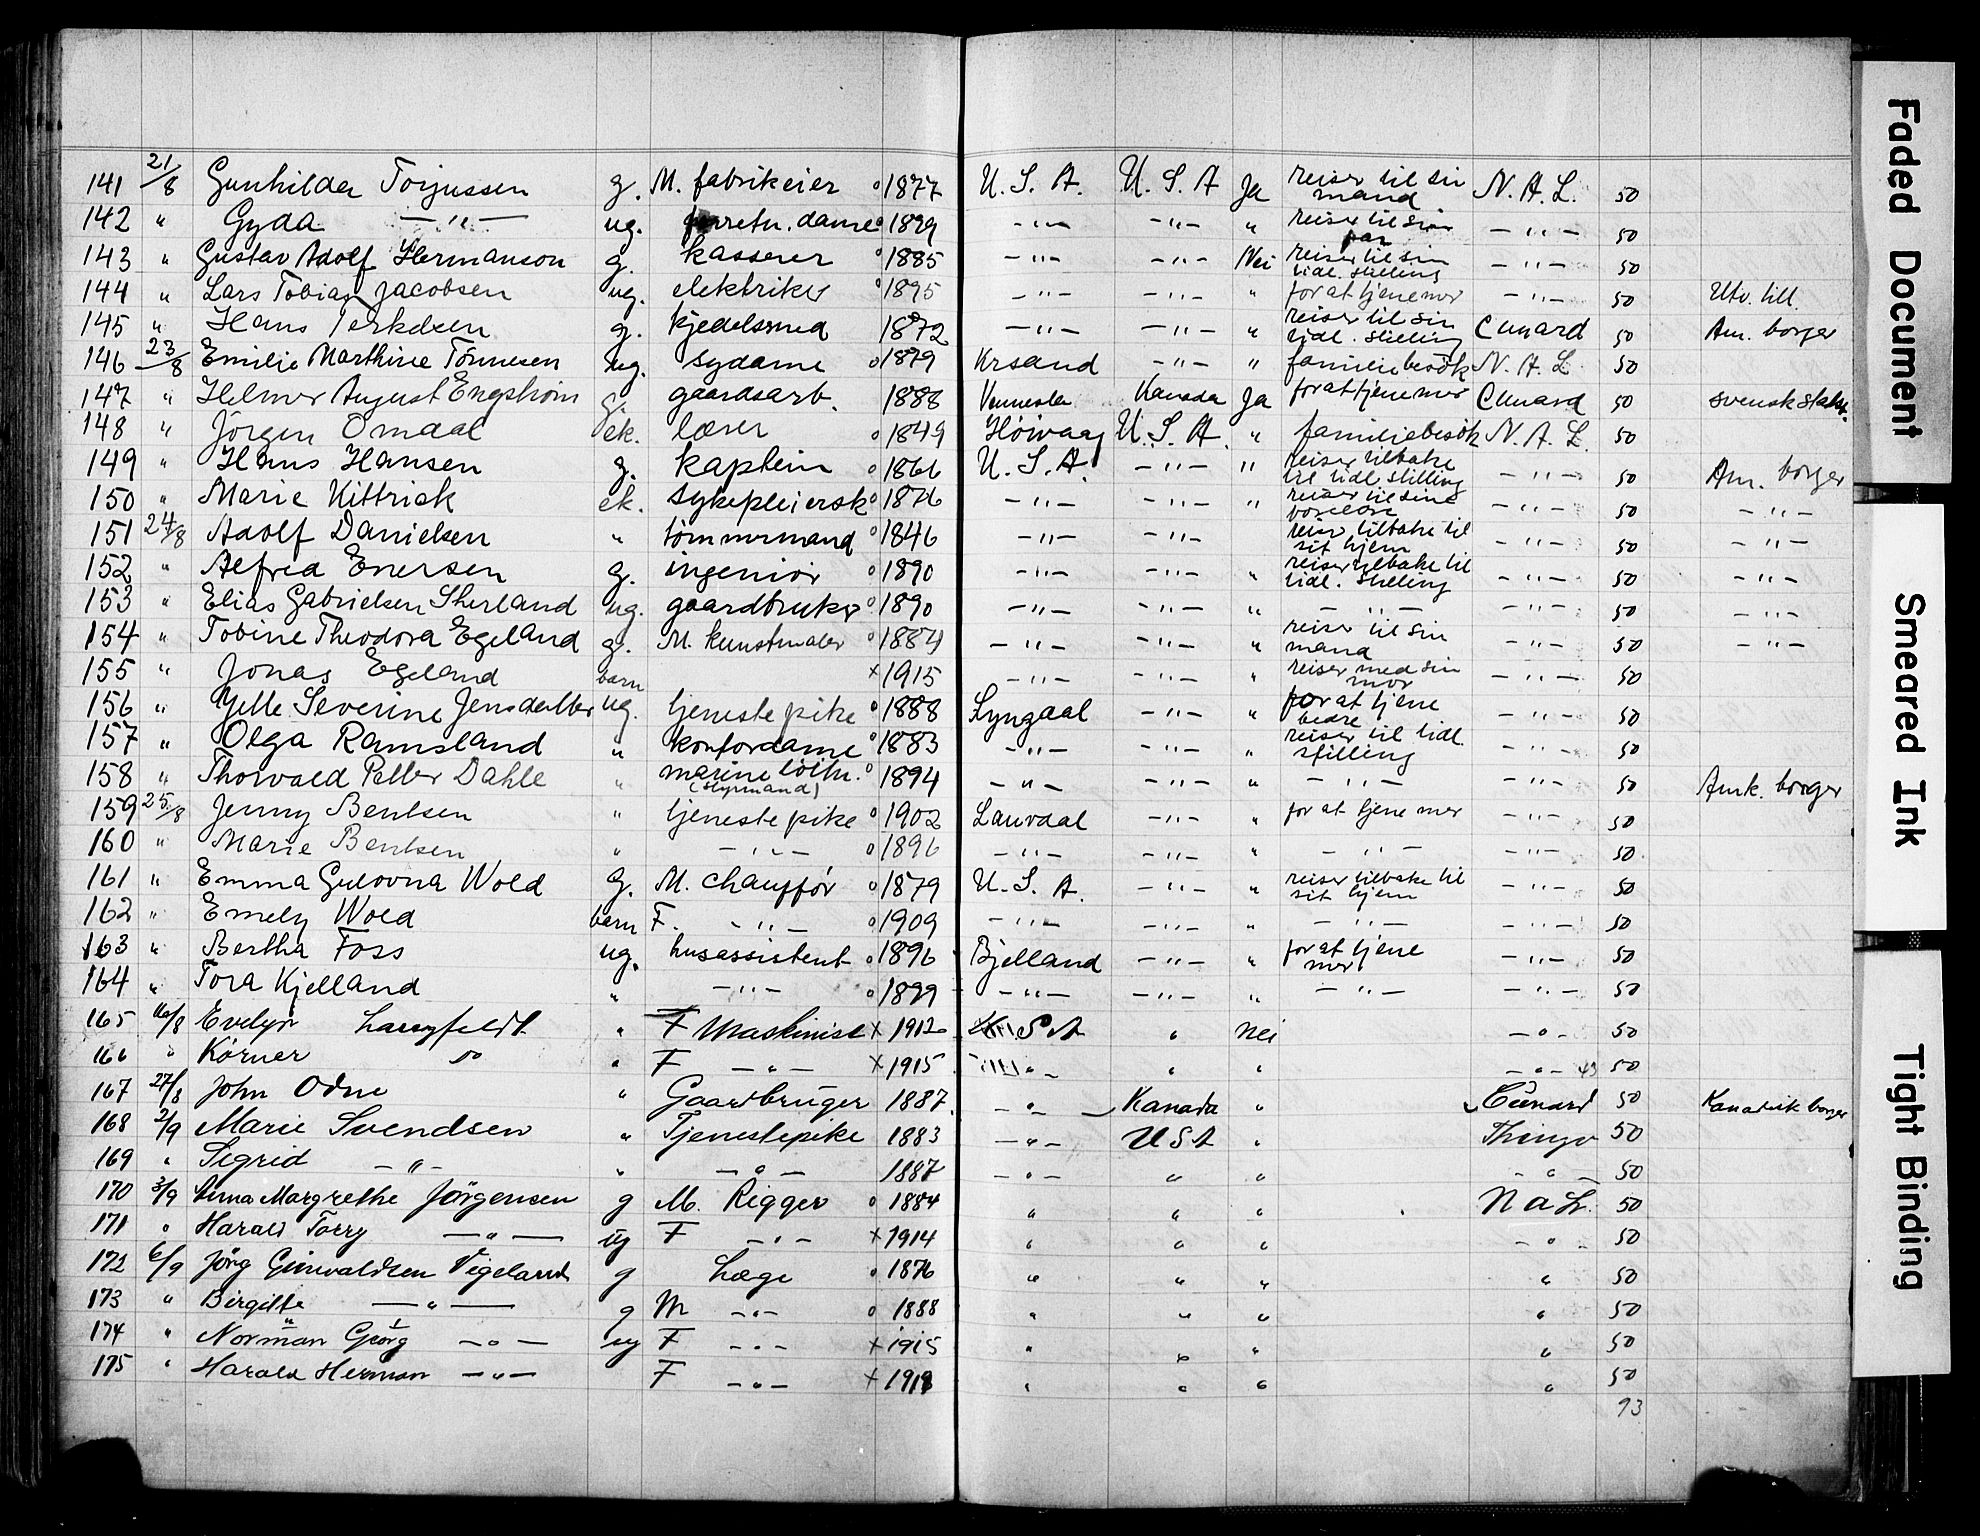 141 21/8 Gunhilda Torjussen g. M. fabrikeier o 1877 U. S. A. U. S. A Ja reiser til sin mand N. A. L. 50
142 " Gyda —"— ug. forretn. dame o 1899 —"— —"— " reiser til sin far —"— 50
143 " Gustav Adolf Hermanson g. kasserer o 1885 —"— —"— Nei reiser til sin tidl. stilling —"— 50
144 " Lars Tobias Jacobsen ug. elektriker o 1895 —"— —"— " for at tjene mer —"— 50 Utv. till.
145 " Hans Terkelsen g. kjedelsmed 1872 —"— —"— " reiser til sin tidl. stilling Cunard 50 Am. borger
146 23/8 Emilie Marthine Tönnesen ug. sydame o 1879 Krsand —"— " familiebesök N. A. L 50
147 " Helmer August Engström g. gaardsarb. 1888 Vennesla Kanada Ja for at tjene mer Cunard 50 svensk
148 " Jörgen Omdal ek. lærer o 1849 Höivaag U. S. A. " familiebesök N. A. L. 50
149 " Hans Hansen g. kaptein o 1866 U. S. A. —"— " reiser tilbake til tidl. stilling —"— 50 Am. borger
150 " Marie Kittrick ek. sykepleiersk o 1876 —"— —"— " reiser til sine —"— 50 —"—
151 24/8 Adolf Danielsen " tömmermand o 1846 —"— —"— reiser tilbake til sit hjem —"— 50 —"—
152 " Alfred Enersen g. ingeniör o 1890 —"— —"— " reiser tilbake til tidl. stilling —"— 50 —"—
153 " Elias Gabrielsen Skerland ug. gaardbruker o 1890 —"— —"— " —"— —"— 50 —"—
154 " Tobine Theodora Egeland g. M. kunstmaler o 1884 —"— —"— " reiser til sin mand —"— 50 —"—
155 " Jonas Egeland barn x 1915 —"— —"— " reiser med sin mor —"— 50
156 " Jelle Severine Jensdatter ug. tjenestepike o 1888 Lyngdal —"— " for at tjene bedre —"— 50
157 " Olga Ramsland " kontordame o 1883 —"— —"— " reiser til tidl. stilling —"— 50
158 " Thorvald Petter Dahle " marine löitn. (styrmand) o 1894 —"— —"— " —"— —"— 50 Amk. borger
159 25/8 Jenny Bentsen " tjenestepike o 1902 Lauvdal —"— " for at tjene mer —"— 50
160 " Marie Bentsen " —"— o 1896 —"— —"— " —"— —"— 50
161 " Emma Gulovna Wold g. M. chauffør o 1879 U. S. A. —"— " reiser tilbake til sit hjem —"— 50
162 " Emely Wold barn F. —"— o 1909 —"— —"— " —"— —"— 50
163 " Bertha Foss ug. husassistent o 1896 Bjelland —"— " for at tjene mer —"— 50
164 " Tora Kjelland " —"— o 1899 —"— —"— " —"— —"— 50
165 26/8 Evelyn Langfeldt " F Maskinist x 1912 U.S.A " Nei —"— 50
166 " Körner do " F —"— x 1915 —"— " " —"— 50
167 27/8 John Odne " Gaardbruger 1887 —"— Kanada " Cunard 50 Kanadisk borger
168 2/9 Marie Svendsen " Tjenestepike 1883 —"— USA " Thingv 50
169 " Sigrid —"— " —"— 1887 —"— " " —"— 50
170 3/9 Anna Margrethe Jörgensen g M. Rigger o 1884 " " " N a L. 50
171 " Harald Torry —"— ug F —"— x 1914 " " " —"— 50
172 6/9 Jörg Gunvaldsen Vigeland g Læge o 1876 " " " " 50
173 " Birgitte —"— g M —"— o 1888 " " " " 50
174 " Norman Georg —"— ug F —"— x 1915 " " " " 50
175 " Harald Herman —"— F —"— x 1918 " " " " 50
93
Faded Document
Smeared Ink
Tight Binding